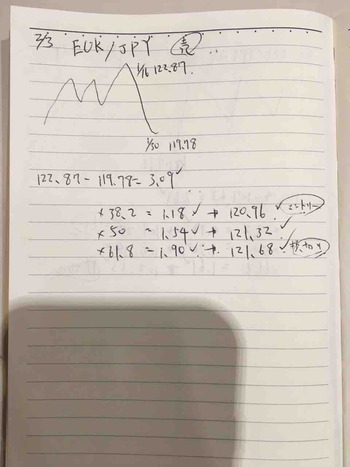 2/3 EUR/JPY 売
1/16 122.87
1/30 119.78
122.87 - 119.78 = 3.09 ✓
×38.2 = 1.18 ✓ → 120.96 ✓ エントリー
×50 = 1.54 ✓ → 121.32 ✓
×61.8 = 1.90 ✓ → 121.68 ✓ 損切り